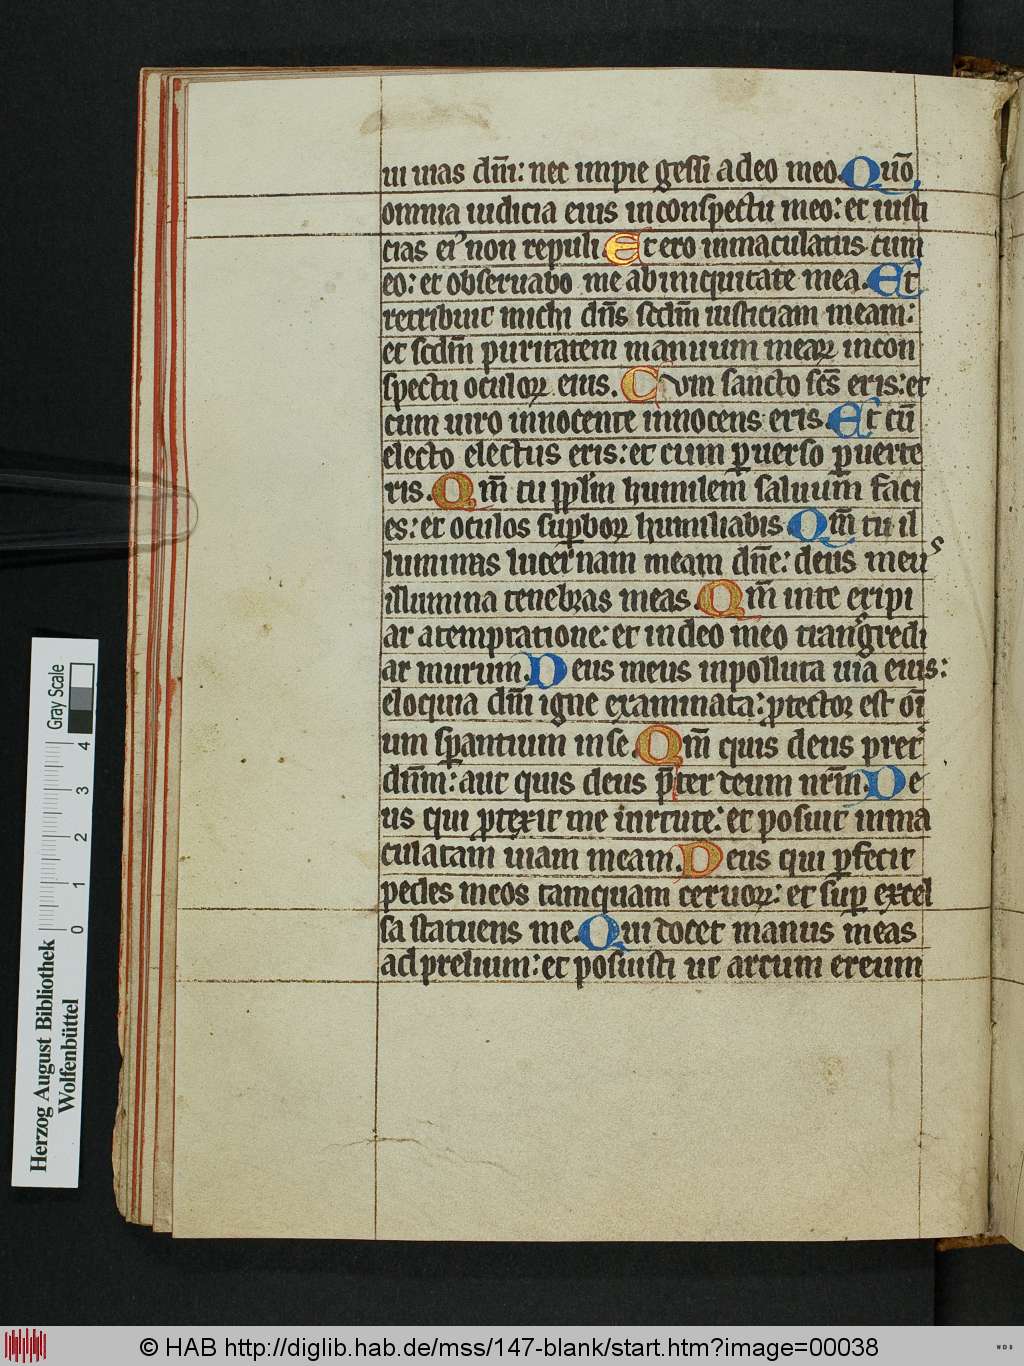 ui uias dñi: nec impie gessi a deo meo. Quō
omnia iudicia eius in conspectu meo: et iusti
cias ei᾽ non repuli. Et ero inmaculatus cum
eo: et obseruabo me ab iniquitate mea. Et
retribuit michi dñs scdm̄ iusticiam meam:
et scdm̄ puritatem manuum meaꝝ in con
spectu oculoꝝ eius. Cum sancto scs̄ eris: et
cum uiro innocente innocens eris. Et cū
electo electus eris: et cum ꝑuerso ꝑuerte
ris. Qm̄ tu pplm̄ humilem saluum faci
es: et oculos suꝑboꝝ humiliabis Qm̄ tu il
luminas lucernam meam dñe: deus meus
illumina tenebras meas. Qm̄ in te eripi
ar a temptatione: et in deo meo transgredi
ar murum. Deus meus inpolluta uia eius:
eloquia dñi igne examinata: ꝓtector est oī
um sꝑantium in se. Qm̄ quis deus pret᾽
dñm: aut quis deus p̄ter deum nr̄m. De
us qui ꝓcinxit me uirtute: et posuit inma
culatam uiam meam. Deus qui ꝑfecit
pedes meos tamquam ceruoꝝ: et suꝑ excel
sa statuens me. Qui docet manus meas
ad prelium: et posuisti ut arcum ereum
Herzog August Bibliothek
Wolfenbüttel
0 1 2 3 4
Gray Scale
© HAB http://diglib.hab.de/mss/147-blank/start.htm?image=00038